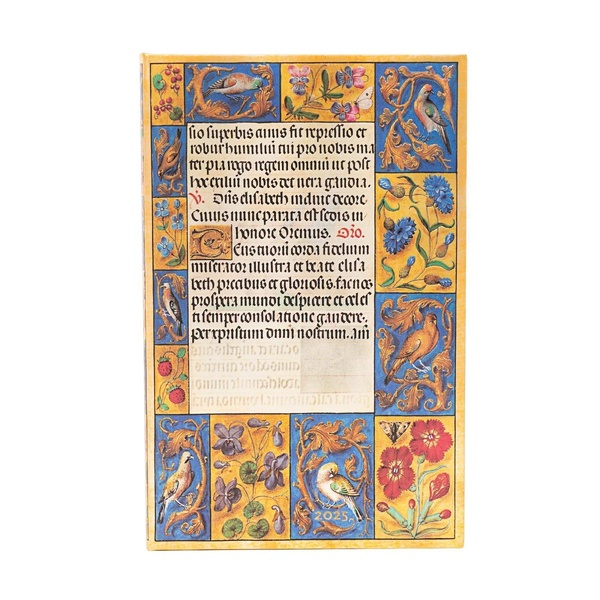 sio superbis cuius fit repressio et
robur humiliū tui pro nobis ma
ter pia rogo regem omniū ut post
hoc exiliū nobis det vera gaudia.
V. Dn̄s elisabeth induit decore.
Cuius nunc parata est sedis in
honore Oremus. Oro.
Deus tuorū corda fidelium
miserator illustra et beate elisa
beth precibus et gloriosis. fac nos
prospera mundi despicere et celes
ti semper consolatione gaudere.
Per xpristum dnm̄ nostrum. am̄
2025